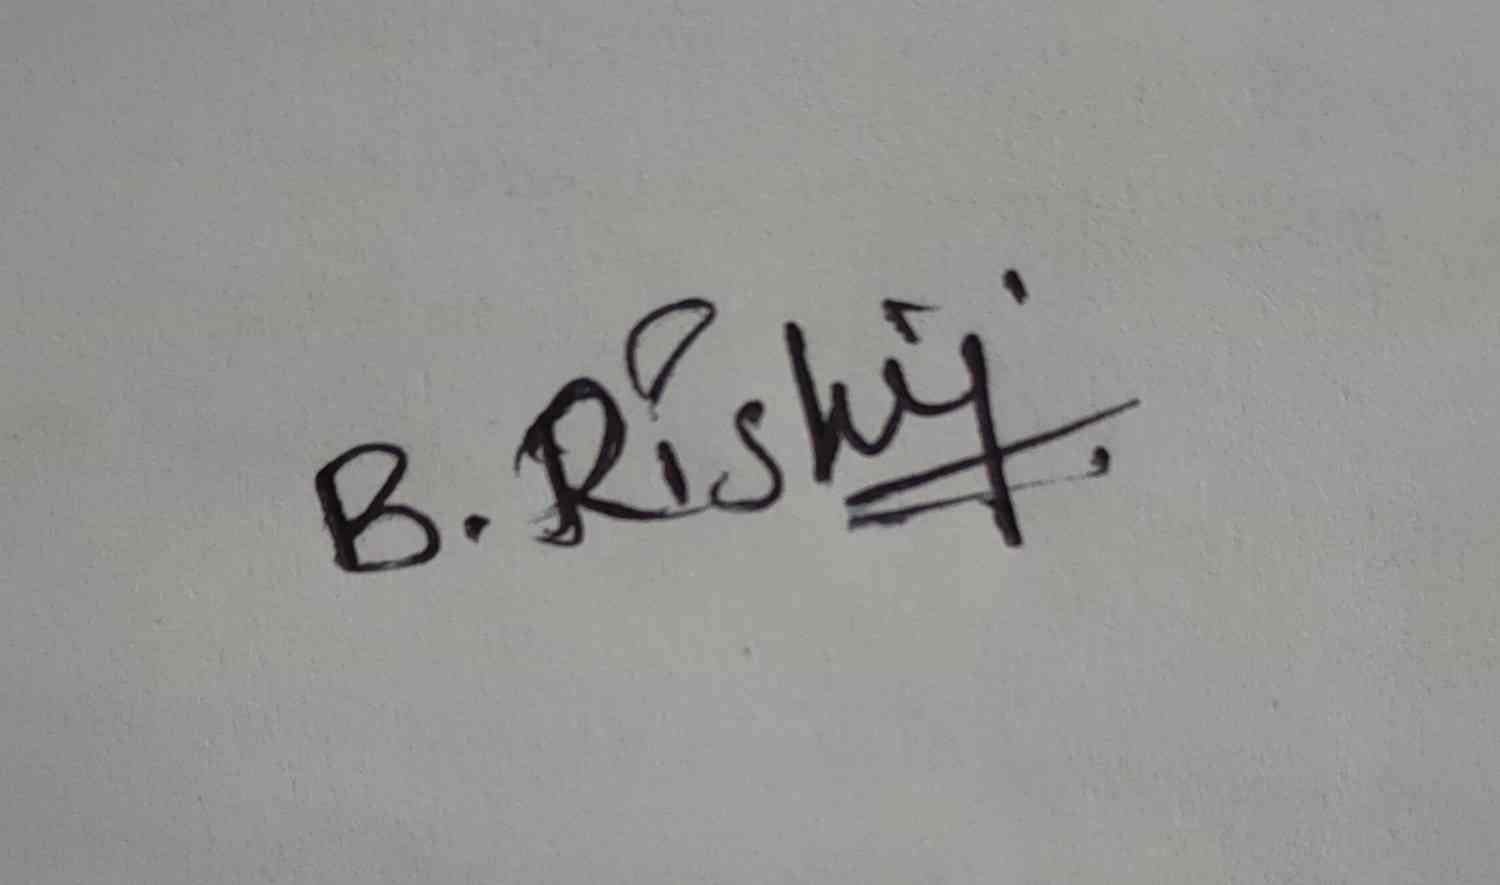 B. Rishij.